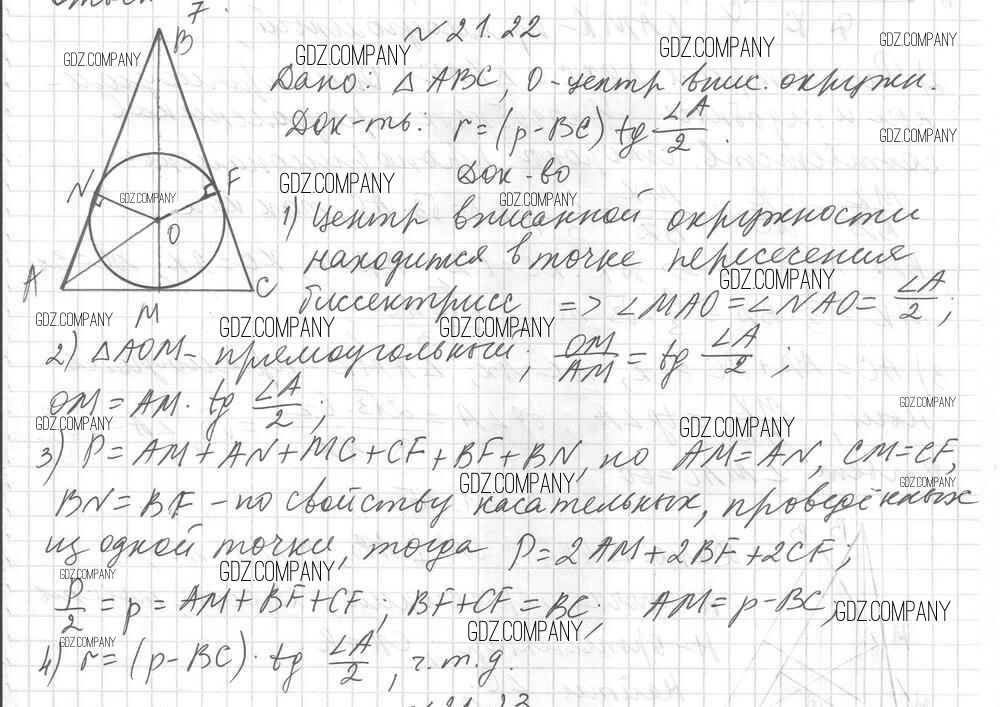 № 21.22
B
GDZ.COMPANY GDZ.COMPANY GDZ.COMPANY GDZ.COMPANY
Дано: △ ABC, O - центр впис. окружн.
Док-ть: r = (p - BC) tg ∠A/2.
GDZ.COMPANY
Док-во
N F
GDZ.COMPANY GDZ.COMPANY GDZ.COMPANY
1) Центр вписанной окружности
O
находится в точке пересечения
A C
GDZ.COMPANY
биссектрисс => ∠MAO = ∠NAO = ∠A/2;
M
GDZ.COMPANY GDZ.COMPANY GDZ.COMPANY
2) △AOM - прямоугольный; OM/AM = tg ∠A/2;
OM = AM · tg ∠A/2;
GDZ.COMPANY GDZ.COMPANY GDZ.COMPANY
3) P = AM + AN + MC + CF + BF + BN, но AM = AN, CM = CF,
GDZ.COMPANY GDZ.COMPANY
BN = BF - по свойству касательных, проведённых
из одной точки, тогда P = 2AM + 2BF + 2CF;
GDZ.COMPANY GDZ.COMPANY
P/2 = p = AM + BF + CF; BF + CF = BC; AM = p - BC,
GDZ.COMPANY
GDZ.COMPANY GDZ.COMPANY
4) r = (p - BC) · tg ∠A/2, ч.т.д.